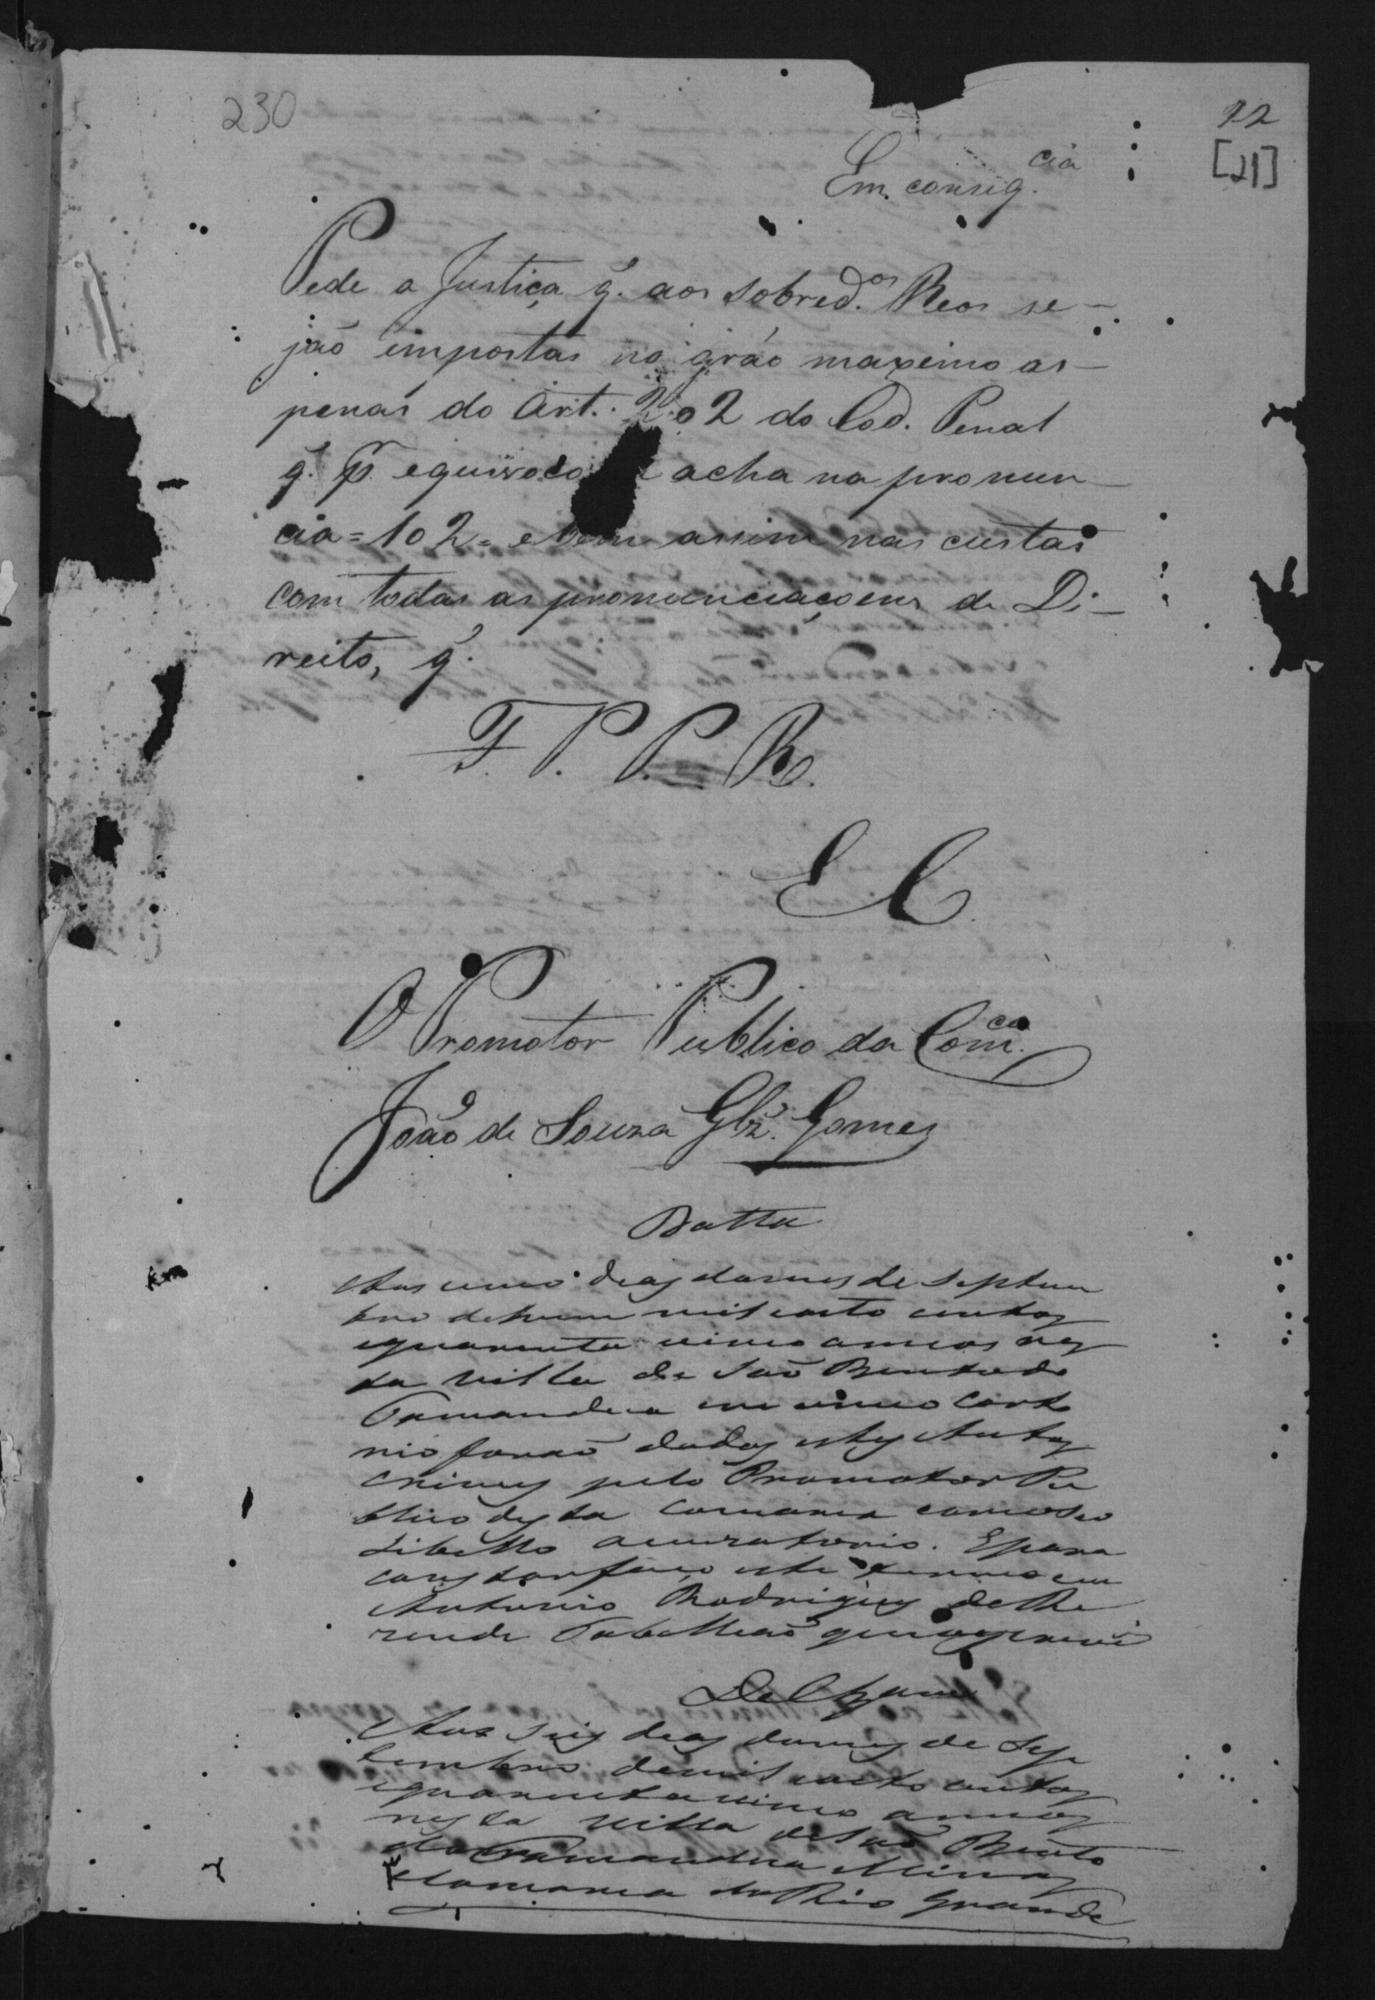 230
22
[21]
Em conseq.cia
Pede a Justiça q̃. aos sobred.os Reos se-
jão impostas no gráo maximo as
penas do Art. 202 do Cod. Penal
q̃. pr. equivoco acha na pronun-
cia = 102 = e bem assim nas custas
com todas as pronunciaçoens de Di-
reito, q̃.
F. P. P. R.
E C.
O Promotor Publico da Com.ca
João de Souza Glz. Gomes
Datta
Aos cinco dias do mes de Septem
bro de hum mil oito centos
e quarenta e cinco annos nes
ta villa de São Bento do
Tamandua em o meo Carto
rio forão dados estes Autos
crimes pelo Promotor Pu
blico desta comarca com o seo
Libello acuzatorio. E para
constar faço este termo eu
Antonio Rodrigues de Re
zende Tabelliaõ que o escrevi
Aos seis dias do mes de Sep
tembro de mil oito centos
e quarenta e cinco annos
nesta villa de São Bento
do Tamandua Minas
e Comarca do Rio Grande